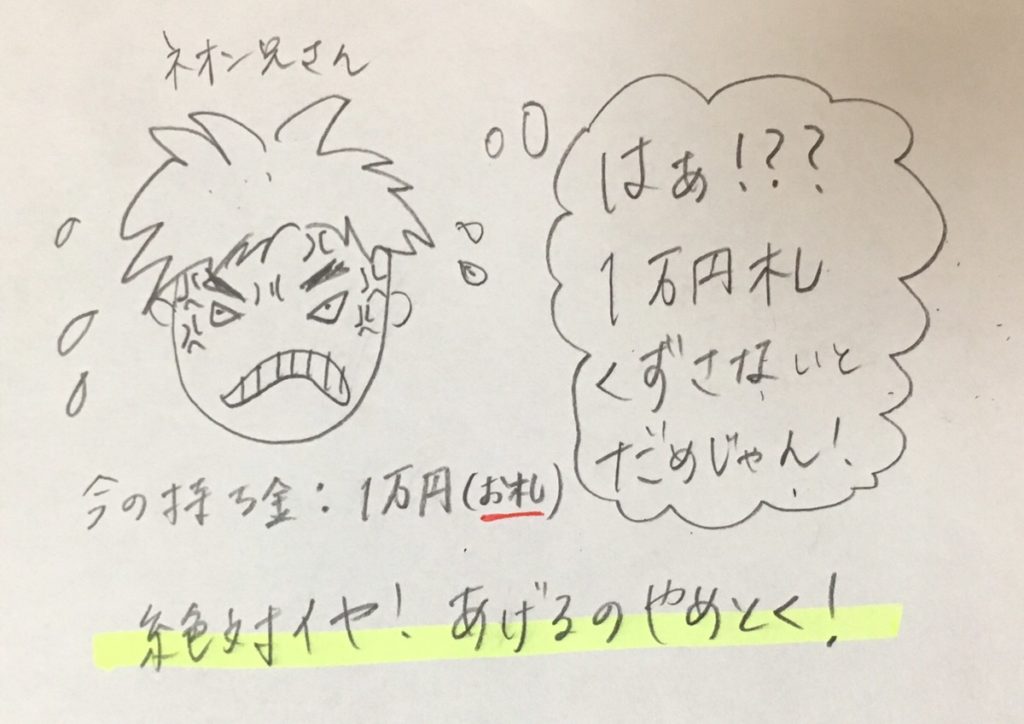 ネオン兄さん
はぁ!??
1万円札
くずさないと
だめじゃん!
今の持ち金：1万円(お札)
絶対イヤ！あげるのやめとく！